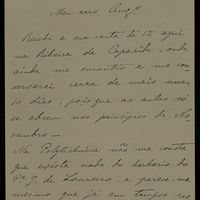 Meu caro Amgº.
Recebi a sua carta de 12 aqui
na Ribeira de Caparide, onde
ainda me encontro e me con-
servarei cerca de mais uns
10 dias, pois que as aulas só
se abrem nos principios de No-
vembro. –
Na Polytechnica não me consta
que exista nada do herbario do
Pe. J. de Loureiro: e parece-me
mesmo que já em tempos res